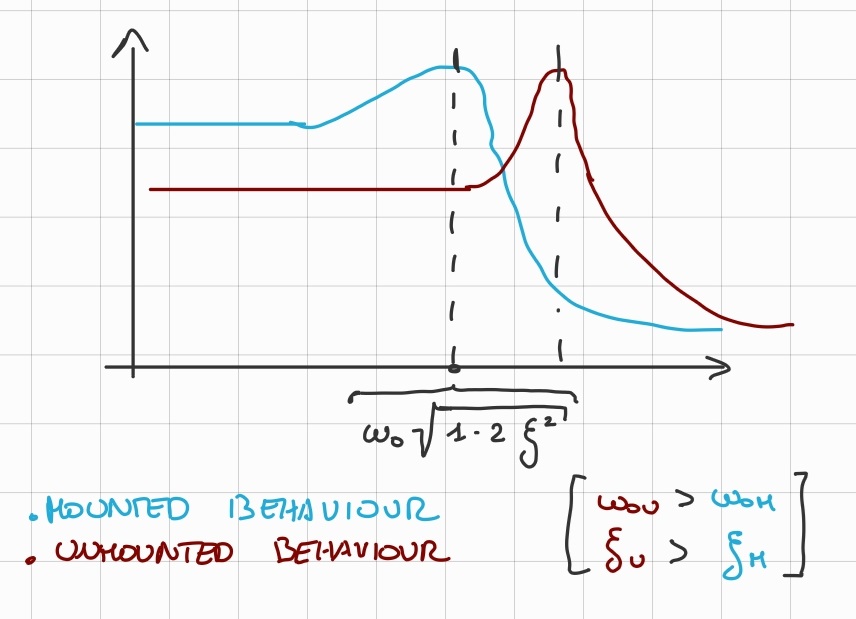 ω₀√1-2ξ²
. MOUNTED BEHAVIOUR
. UNMOUNTED BEHAVIOUR
[ω₀ᵤ > ω₀M
ξᵤ > ξM]